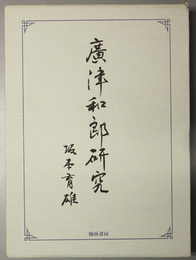 廣津和郎研究
坂本育雄
翰林書房